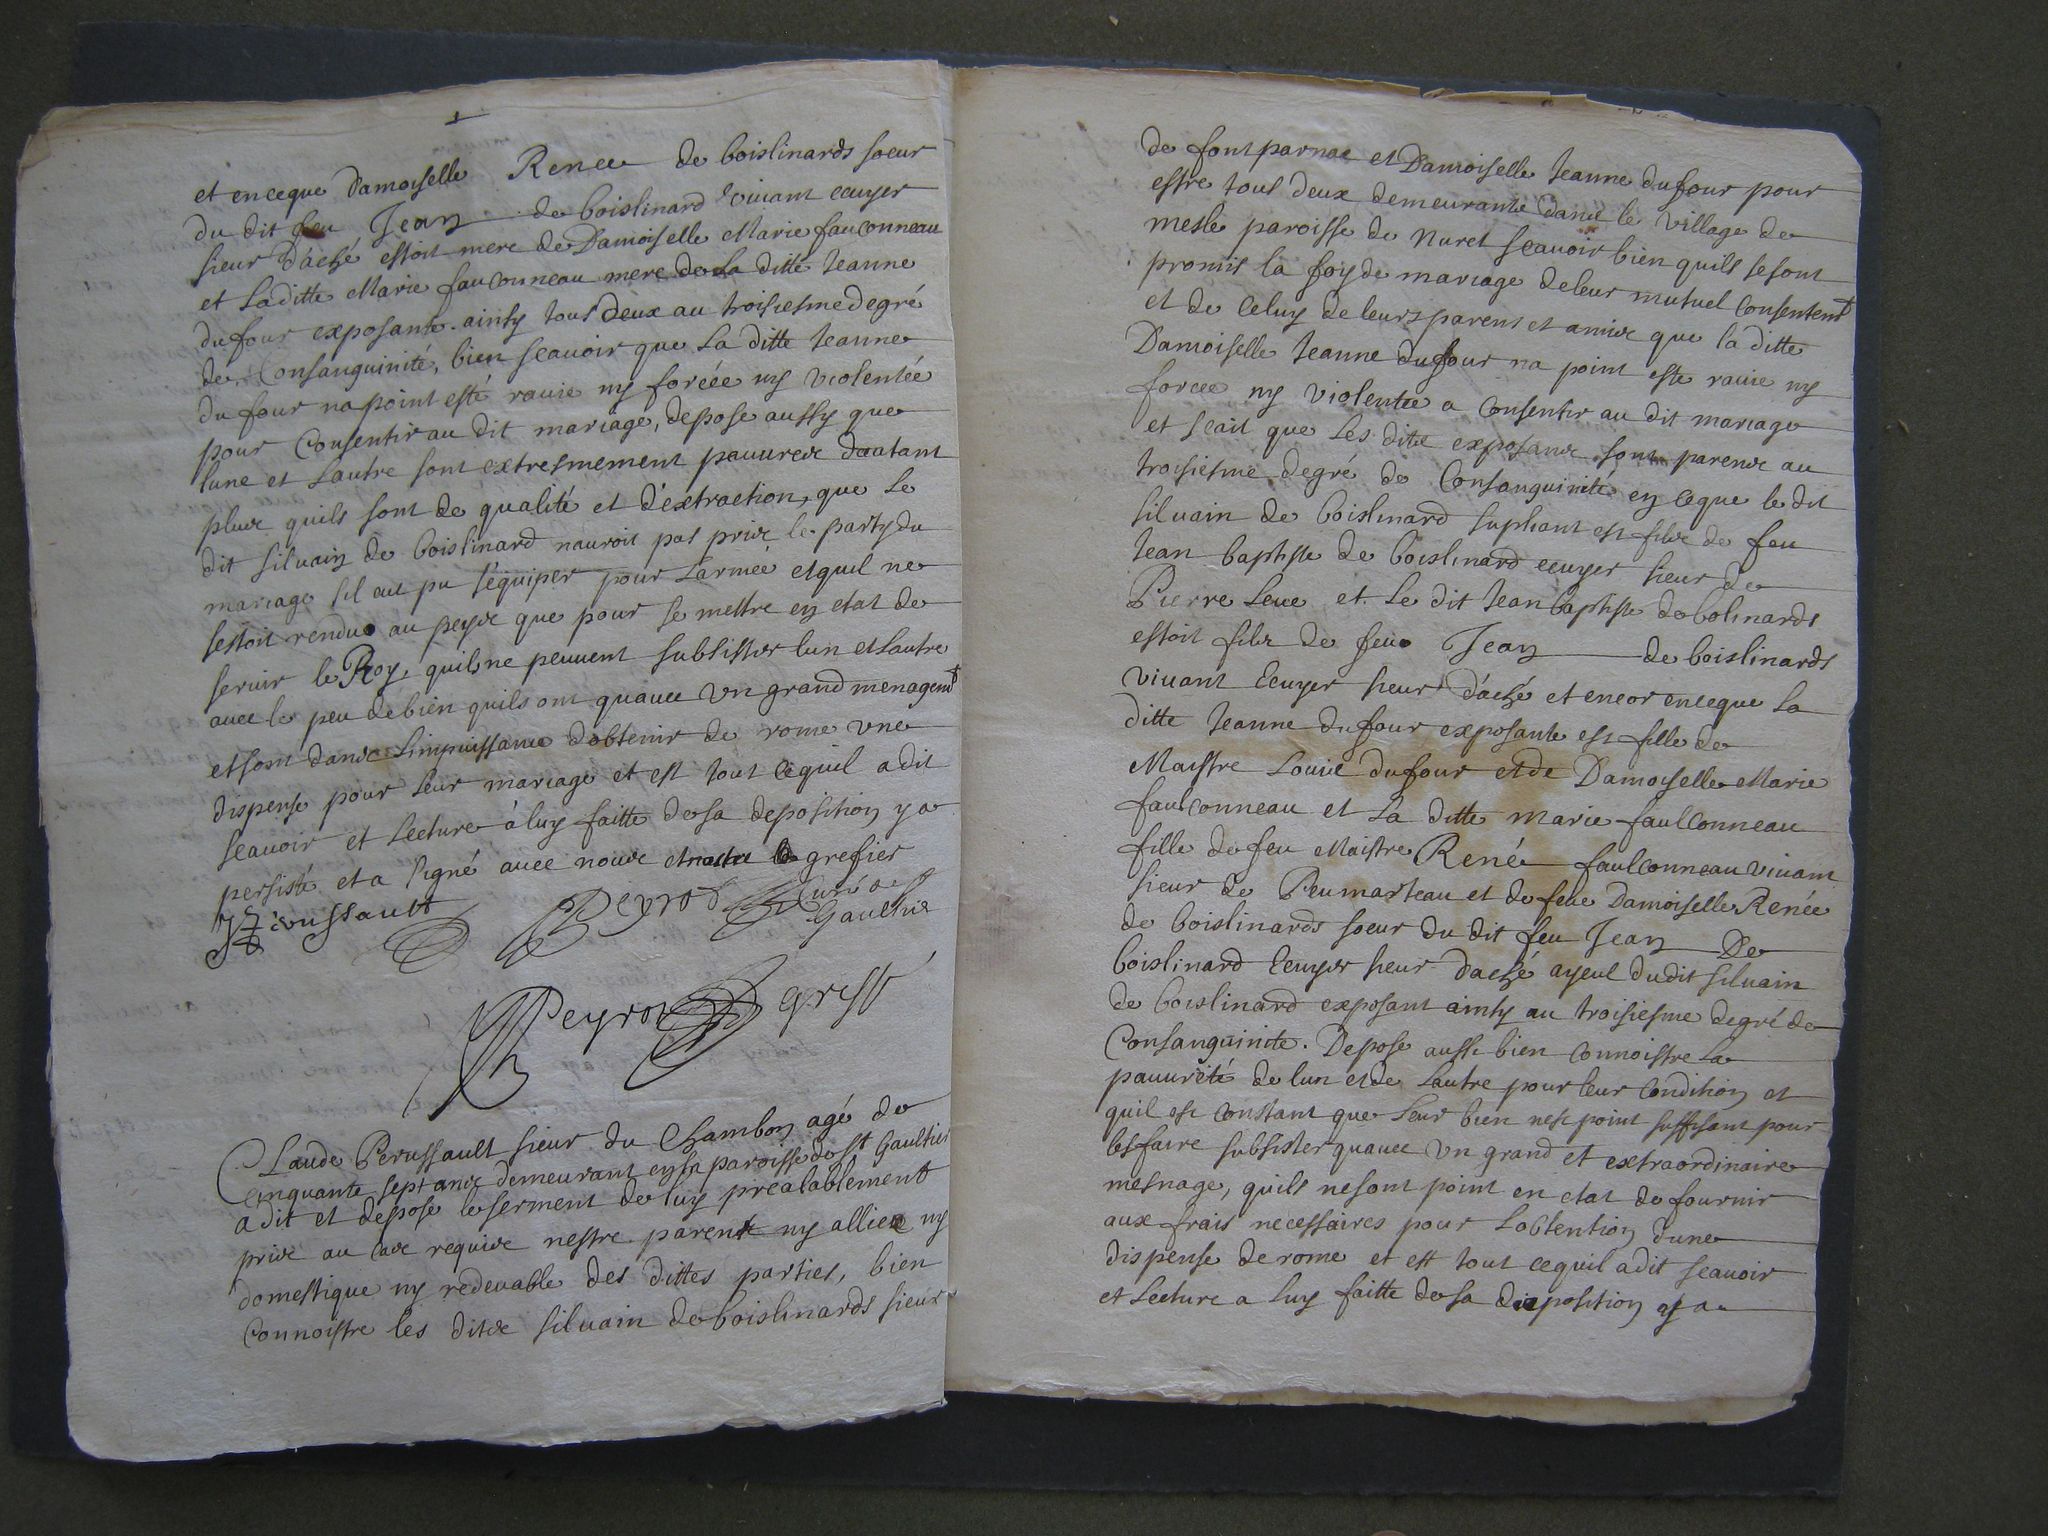 et enceque damoiselle Renee de boislinards soeur
du dit feu Jean de boislinard vivant ecuyer
sieur daché estoit mere de Damoiselle Marie fauconneau
et Laditte Marie fauconneau mere de La ditte Jeanne
dufour exposante. ainsy tous deux au troisiesme degré
de Consanguinité, bien scauoir que La ditte Jeanne
du four na point esté rauie ny forcée ny violentée
pour Consentir au dit mariage, depose aussy que
lune et Lautre sont extresmement pauures dautant
plus quils sont de qualité et d'extraction, que Le
dit siluain de boislinard nauroit pas pris le party du
mariage sil aut pu s'equiper pour Larmée et quil ne
sestoit rendu au peys que pour se mettre en etat de
seruir le Roy, quils ne peuuent subsister lun et Lautre
auec le peu de bien quils ont quauec vn grand menagemt
et sont dans Limpuissance dobtenir de rome vne
dispense pour Leur mariage et est tout ce quil a dit
scauoir et Lecture à luy faitte de sa deposition y a
persisté et a signé auec nous et nostre grefier
Peyrot Curé de
Gaultier
Peyrot greff
Claude Perussault sieur du Chambon agé de
cinquante sept ans demeurant en sa paroisse de St Gaultier
a dit et depose le serment de luy prealablement
pris au cas requis nestre parent ny allié ny
domestique ny redeuable des dittes parties, bien
Connoistre les dits siluain de boislinards sieur
de fontparnac et Damoiselle Jeanne dufour pour
estre tous deux demeurants dans le village de
mesle paroisse de Nuret scauoir bien quils se sont
promis la foy de mariage de leur mutuel Consentemt
et de Celuy de leurs parens et amis que la ditte
Damoiselle Jeanne dufour na point este rauie ny
forcee ny violentée a Consentir au dit mariage
et scait que Les dits exposans sont parens au
troisiesme degré de Consanguinite en ce que le dit
siluain de boislinard supliant est fils de feu
Jean baptiste de boislinard ecuyer sieur de
Pierre Leue et Le dit Jean baptiste de bolinards
estoit fils de feu Jean de boislinards
viuant Ecuyer sieur d'aché et encor enceque La
ditte Jeanne dufour exposante est fille de
Maistre Louis dufour et de Damoiselle Marie
faulconneau et La ditte marie faulConneau
fille de feu Maistre René faulconneau viuant
sieur de Peumarteau et de feue Damoiselle Renée
de boislinards soeur du dit feu Jean De
boislinard Ecuyer sieur daché ayeul dudit siluain
de boislinard exposant ainsy au troisiesme degré de
Consanguinite. Depose aussi bien Connoistre La
pauureté de lun et de Lautre pour leur Condition et
quil est Constant que Leur bien nest point suffisant pour
les faire subsister quauec vn grand et extraordinaire
mesnage, quils ne sont point en etat de fournir
aux frais necessaires pour Lobtention dune
dispense de rome et est tout cequil a dit scauoir
et Lecture a luy faitte de sa deposition y a